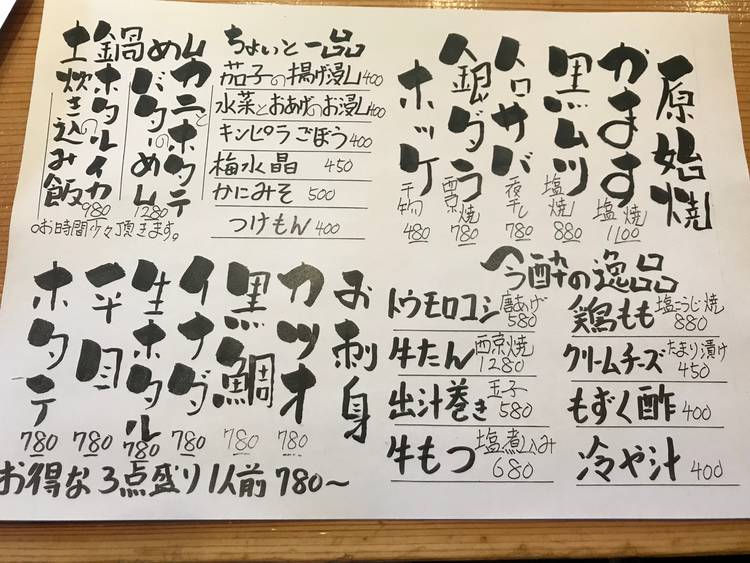 原始焼
かます 塩焼 1100
黒ムツ 塩焼 880
トロサバ 夜干し 780
銀ダラ 西京焼 780
ホッケ 干物 480
ちょいと一品
茄子の揚げ浸し 400
水菜とおあげのお浸し 400
キンピラごぼう 400
梅水晶 450
かにみそ 500
つけもん 400
土鍋めし
カニとホタテ
バターのめし 1280
ホタルイカの
炊き込み飯 980
お時間少々頂きます。
お刺身
カツオ 780
黒鯛 780
イナダ 780
生ホタル 780
平目 780
ホタテ 780
お得な3点盛り1人前780〜
今酔の逸品
トウモロコシ 唐あげ 580
牛たん 西京焼 1280
出汁巻き 玉子 580
牛もつ 塩煮込み 680
鶏もも 塩こうじ焼 880
クリームチーズ たまり漬け 450
もずく酢 400
冷や汁 400